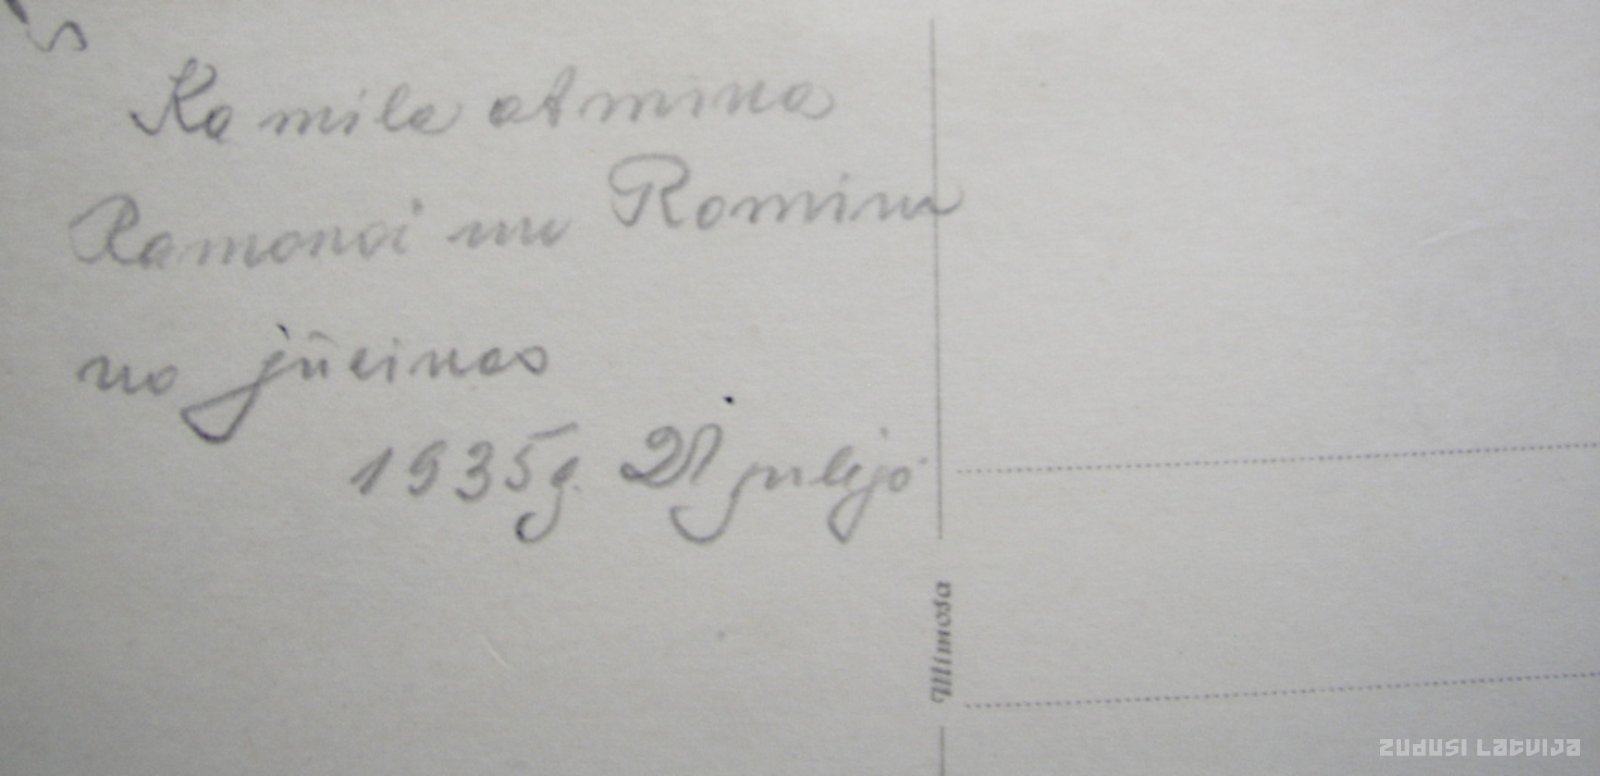 Kamila atmina
Ramonai un Romim
no jūsinas
1935g. 21 julijā
Mimosa
ZUDUSI LATVIJA